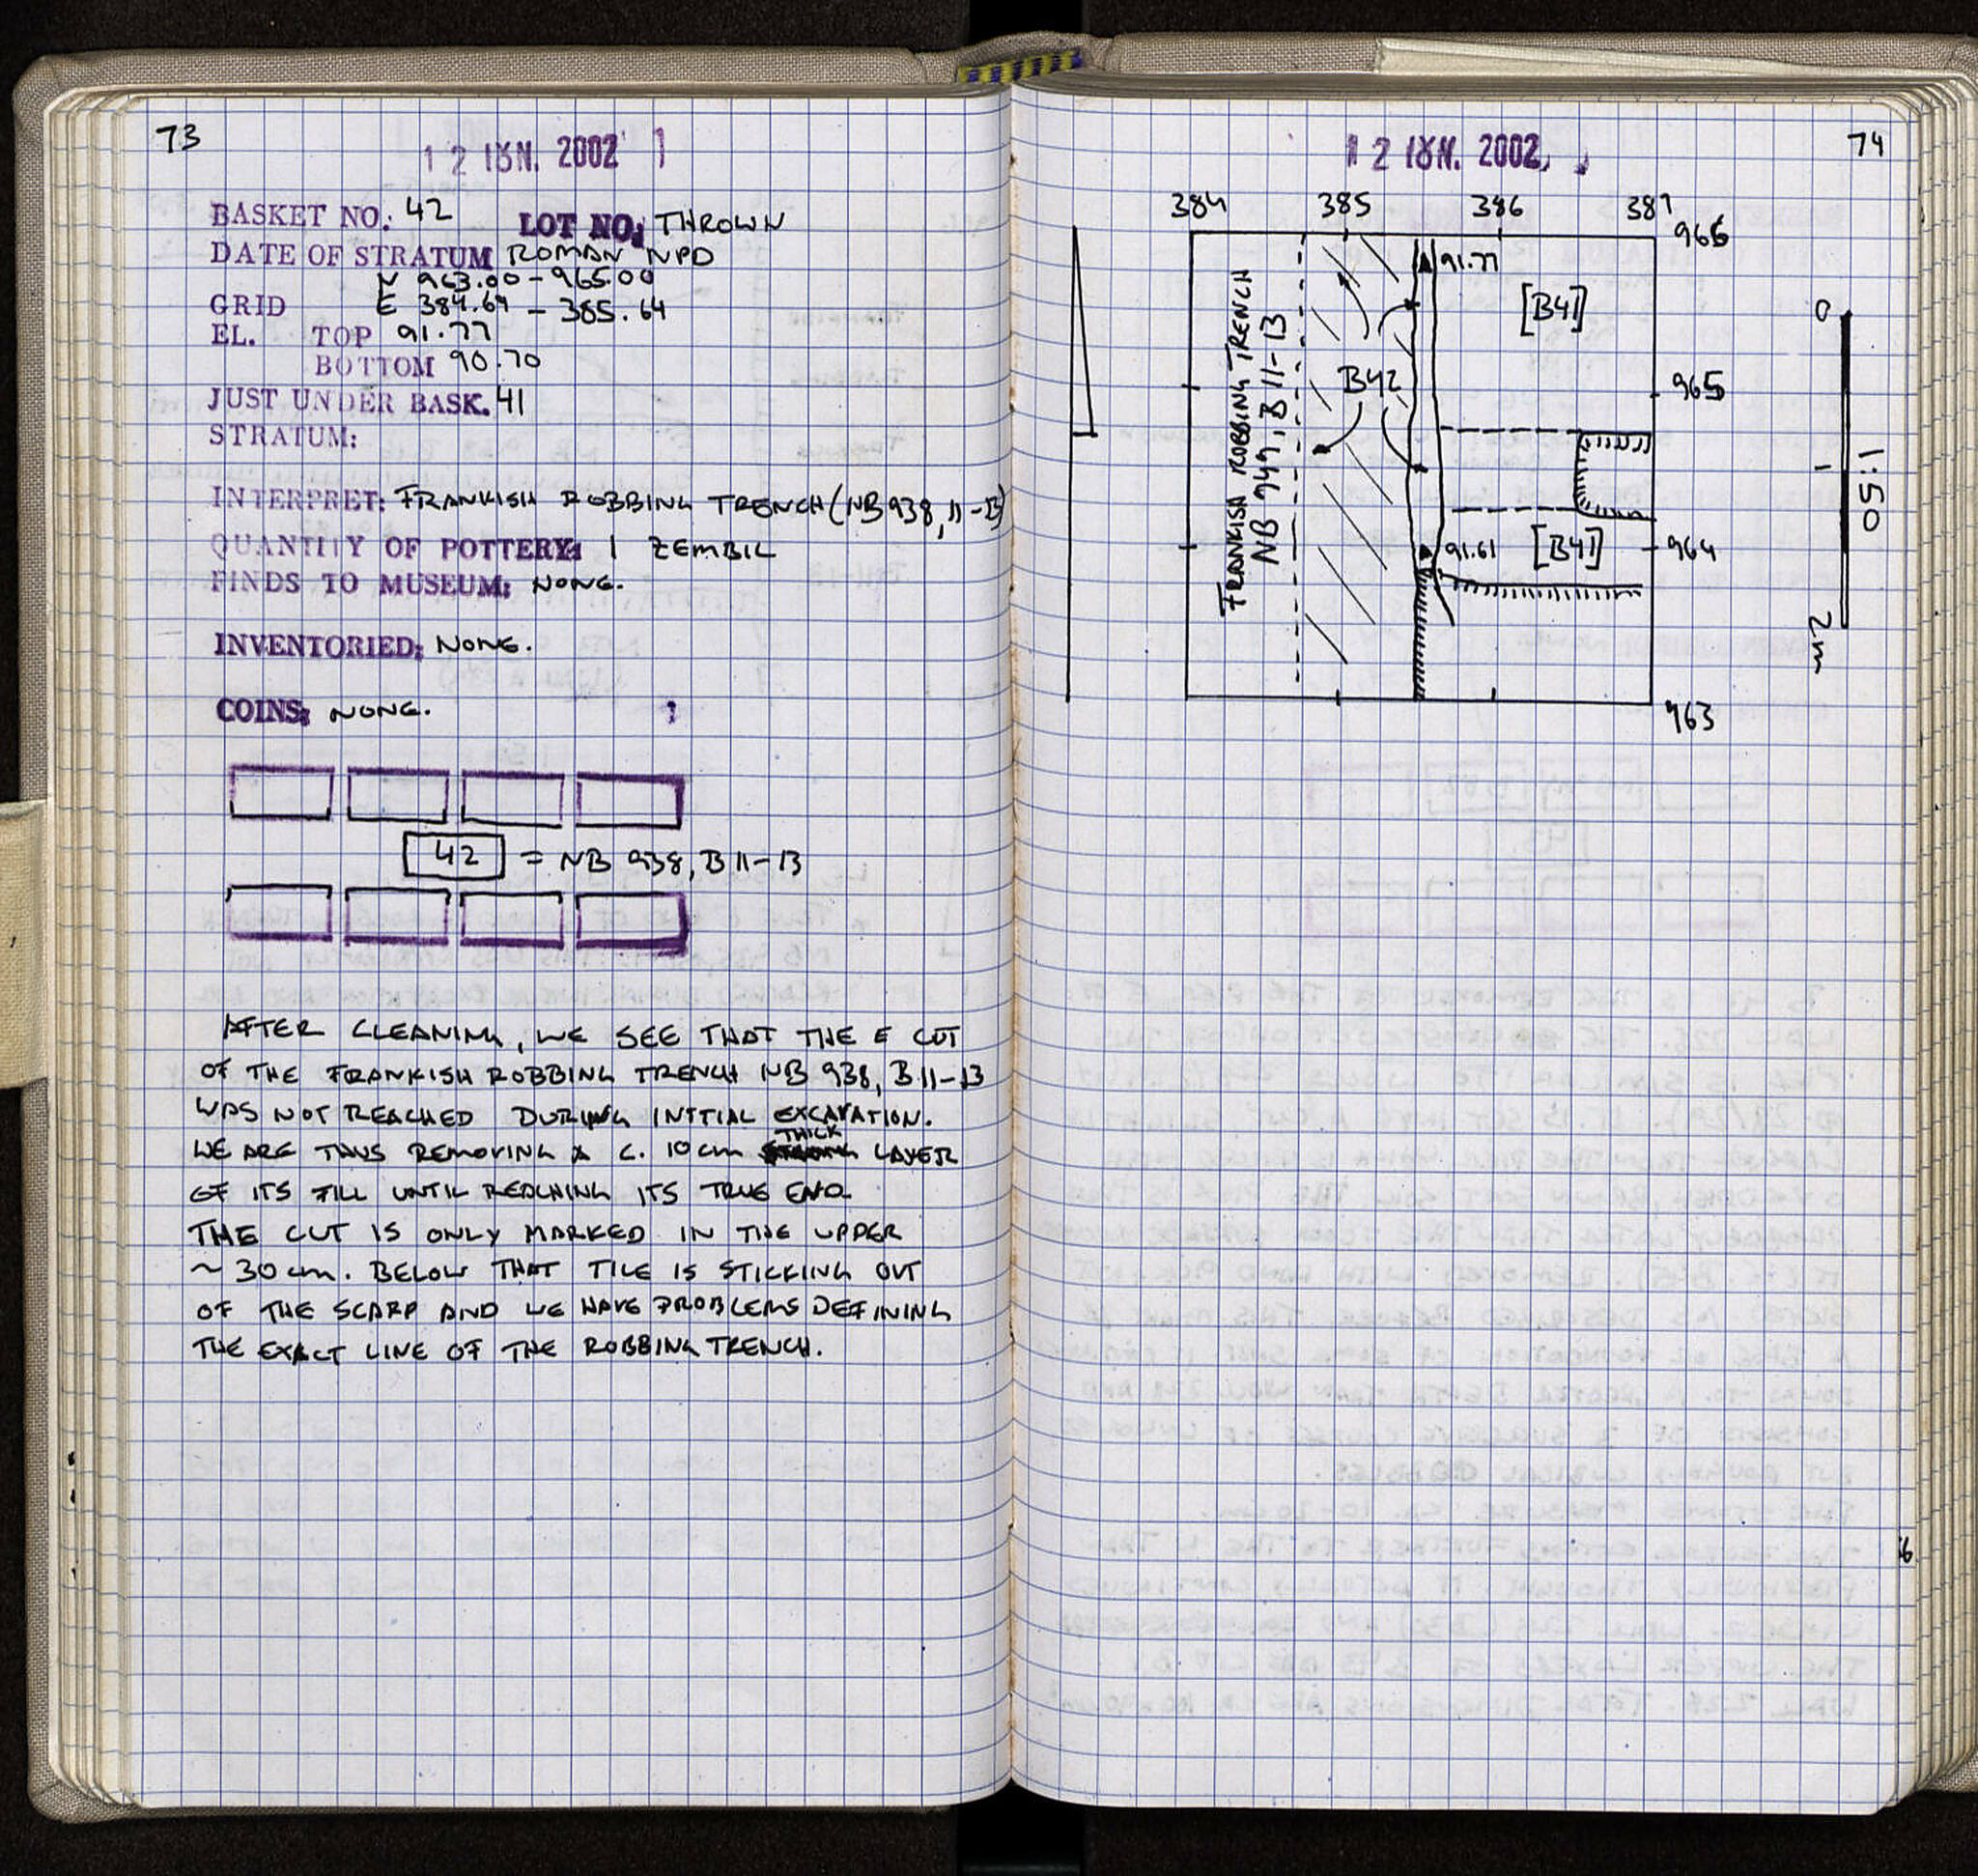 73
12 ΙΟΥΝ. 2002
BASKET NO.: 42 LOT NO.: THROWN
DATE OF STRATUM ROMAN NPD
N 963.00-965.00
GRID E 384.64 - 385.64
EL. TOP 91.77
BOTTOM 90.70
JUST UNDER BASK. 41
STRATUM:
INTERPRET: FRANKISH ROBBING TRENCH (NB 938, 11-13)
QUANTITY OF POTTERY: 1 ZEMBIL
FINDS TO MUSEUM: NONE.
INVENTORIED: NONE.
COINS: NONE.
42 = NB 938, B 11-13
AFTER CLEANING, WE SEE THAT THE E CUT
OF THE FRANKISH ROBBING TRENCH NB 938, B 11-13
WAS NOT REACHED DURING INITIAL EXCAVATION.
WE ARE THUS REMOVING A C. 10 cm THICK LAYER
OF ITS FILL UNTIL REACHING ITS TRUE END.
THE CUT IS ONLY MARKED IN THE UPPER
~ 30 cm. BELOW THAT TILE IS STICKING OUT
OF THE SCARP AND WE HAVE PROBLEMS DEFINING
THE EXACT LINE OF THE ROBBING TRENCH.
12 ΙΟΥΝ. 2002
74
384 385 386 387
966
91.77
[B41]
0
FRANKISH ROBBING TRENCH
NB 949, B 11-13
B42
965
1
1:50
91.61 [B41]
964
2m
963